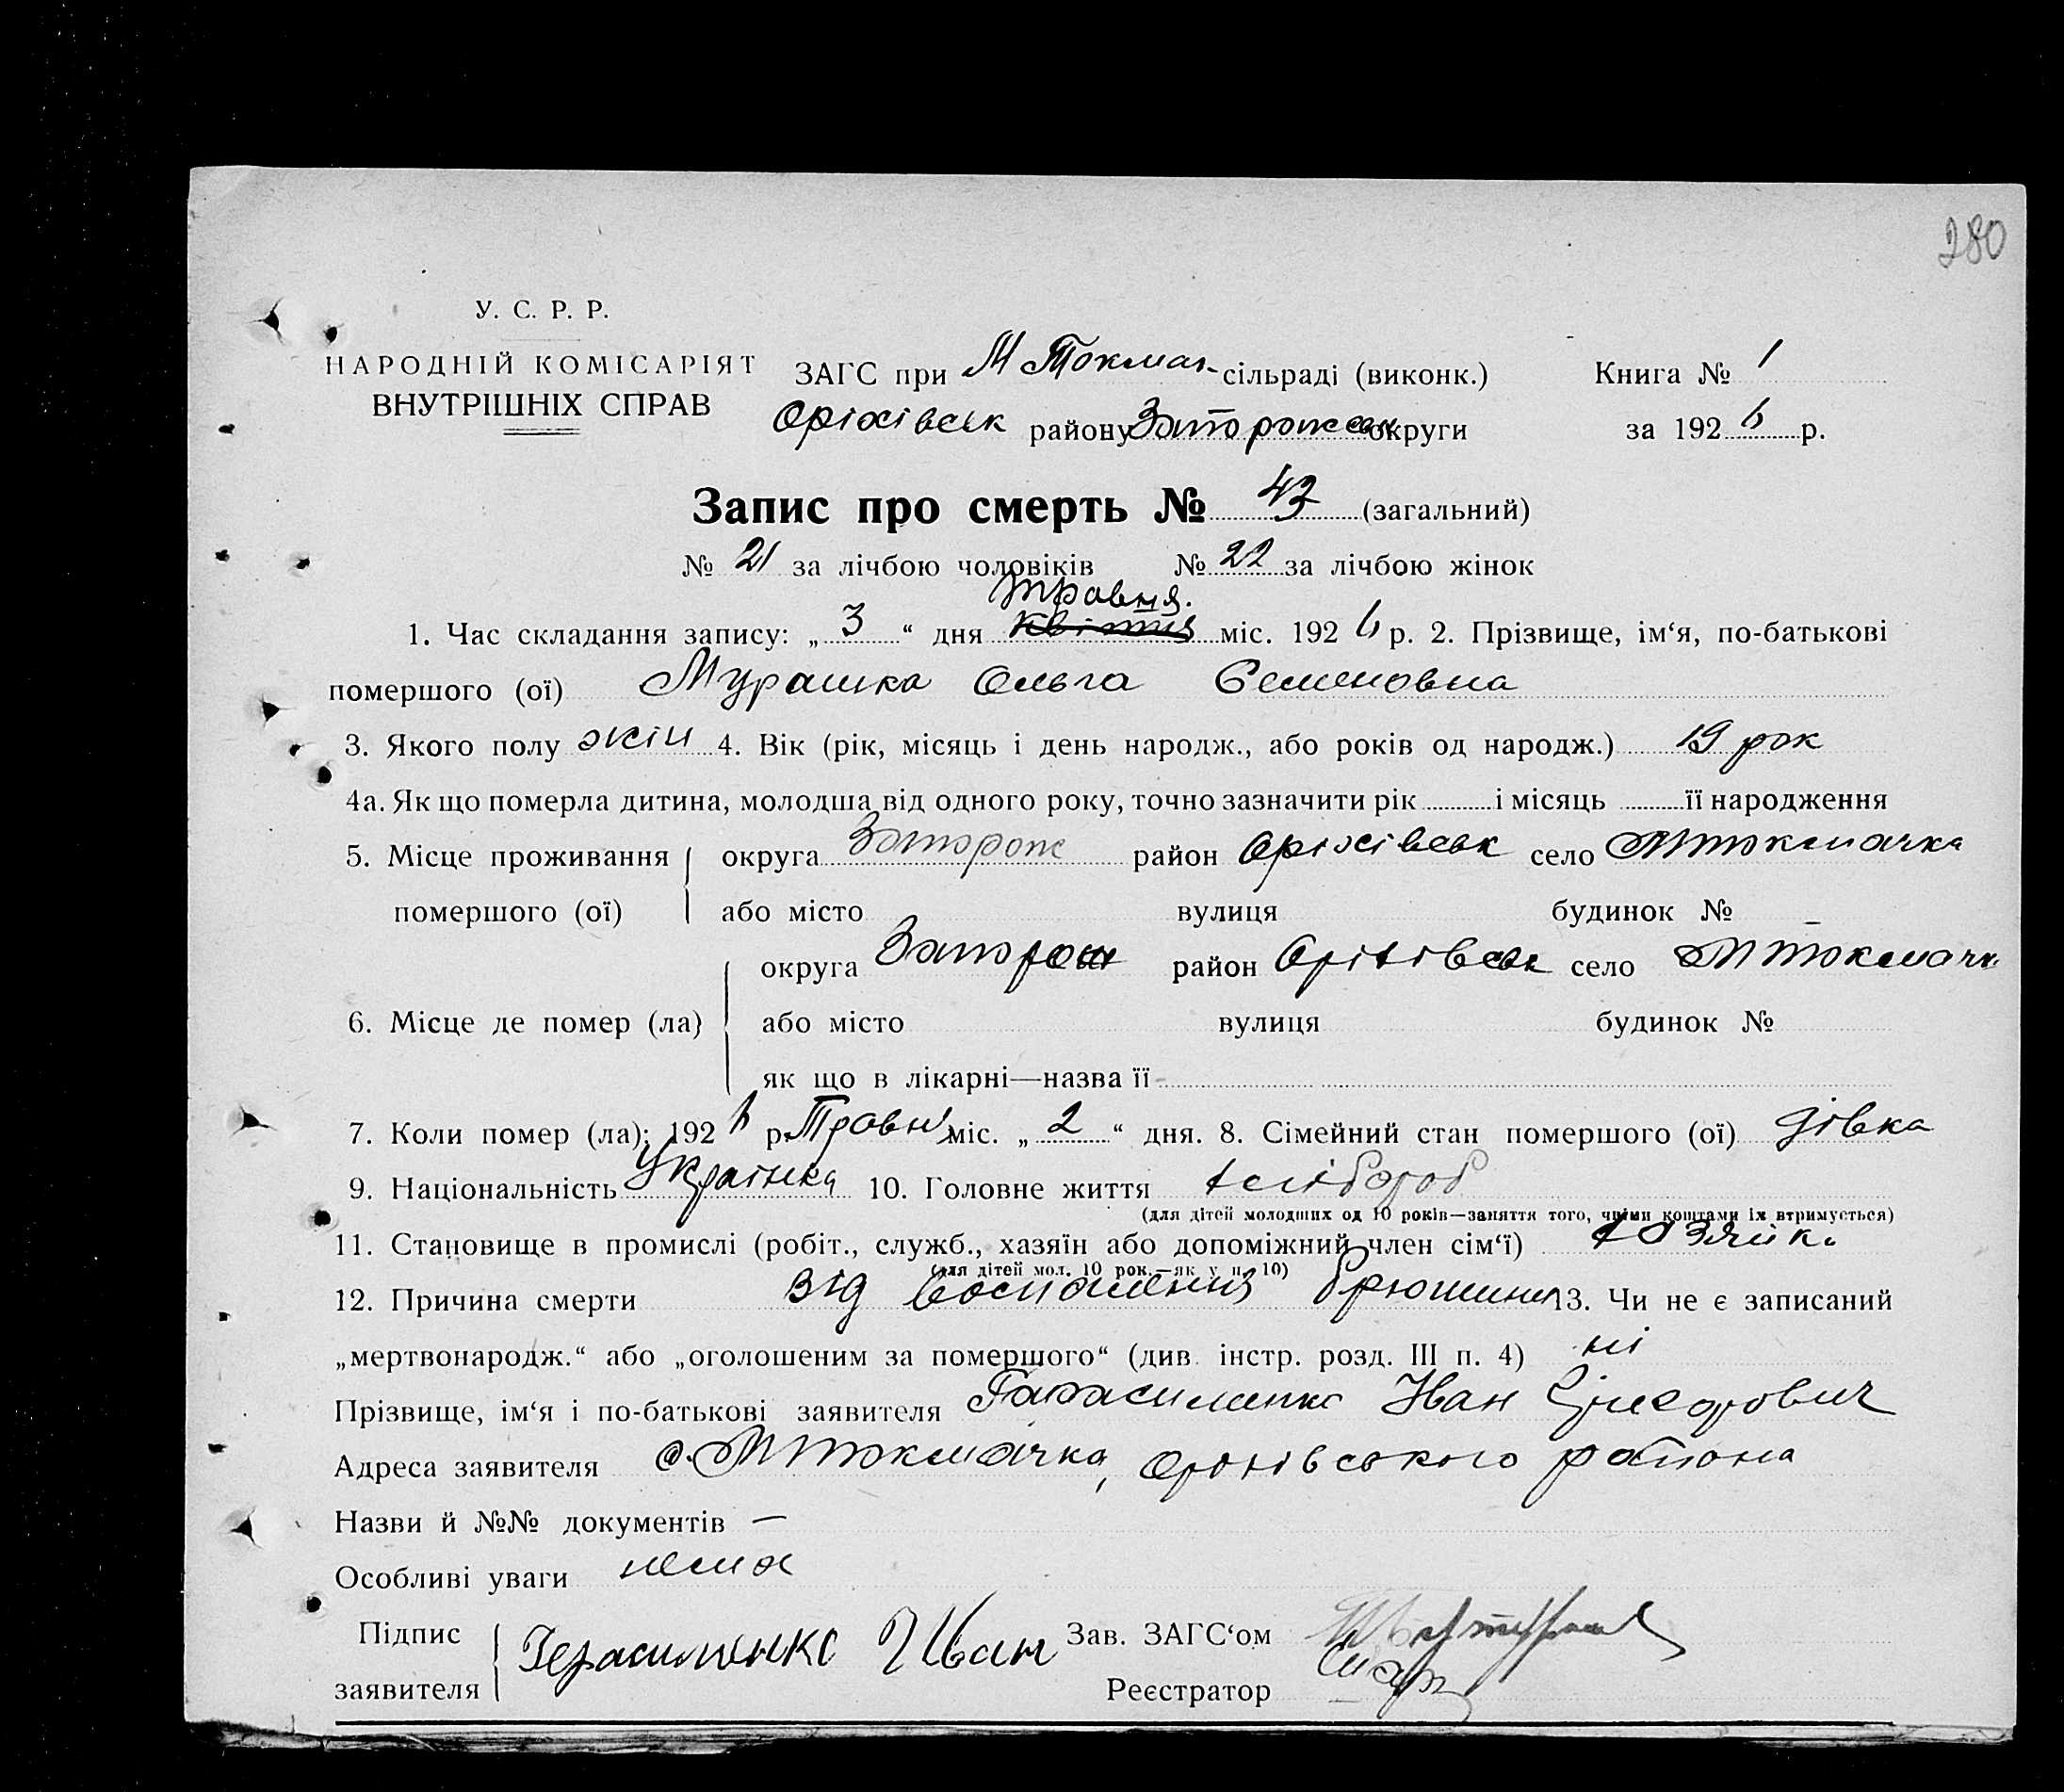 280
У. С. Р. Р.
НАРОДНІЙ КОМІСАРІЯТ
ВНУТРІШНІХ СПРАВ
ЗАГС при М Токмач. сільраді (виконк.) Книга № 1
Оріхівськ району Запорожськ округи за 1926 р.
Запис про смерть № 43 (загальний)
№ 21 за лічбою чоловіків № 22 за лічбою жінок
Травня.
1. Час складання запису: „3“ дня квітня міс. 1926 р. 2. Прізвище, ім‘я, по-батькові
помершого (ої) Мурашка Ольга Семеновна
3. Якого полу жін 4. Вік (рік, місяць і день народж., або років од народж.) 19 рок
4а. Як що померла дитина, молодша від одного року, точно зазначити рік і місяць її народження
5. Місце проживання округа Запорож район Оріхівськ село М Токмачка
помершого (ої) або місто вулиця будинок № –
округа Запорож район Оріхівськ село М Токмачк
6. Місце де помер (ла) або місто вулиця будинок №
як що в лікарні—назва її -
7. Коли помер (ла); 1926 р. Травня міс. „2“ дня. 8. Сімейний стан помершого (ої) дівка
9. Національність Українка 10. Головне життя хлібороб
(для дітей молодших од 10 років—заняття того, чиїми коштами їх втримується)
11. Становище в промислі (робіт., служб., хазяїн або допоміжний член сім‘ї) хозяйка
(для дітей мол. 10 рок.—як у п. 10)
12. Причина смерти від воспаления брюшины 13. Чи не є записаний
„мертвонародж.“ або „оголошеним за помершого“ (див. інстр. розд. III п. 4) ні
Прізвище, ім‘я і по-батькові заявителя Гарасименко Іван Григорович
Адреса заявителя с. М Токмачка, Оріхівського района
Назви й №№ документів —
Особливі уваги нема
Підпис Герасименко Иван Зав. ЗАГС‘ом
заявителя Реєстратор